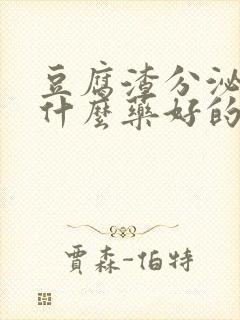 豆腐渣分泌
什麼藥好的
賈森-伯特